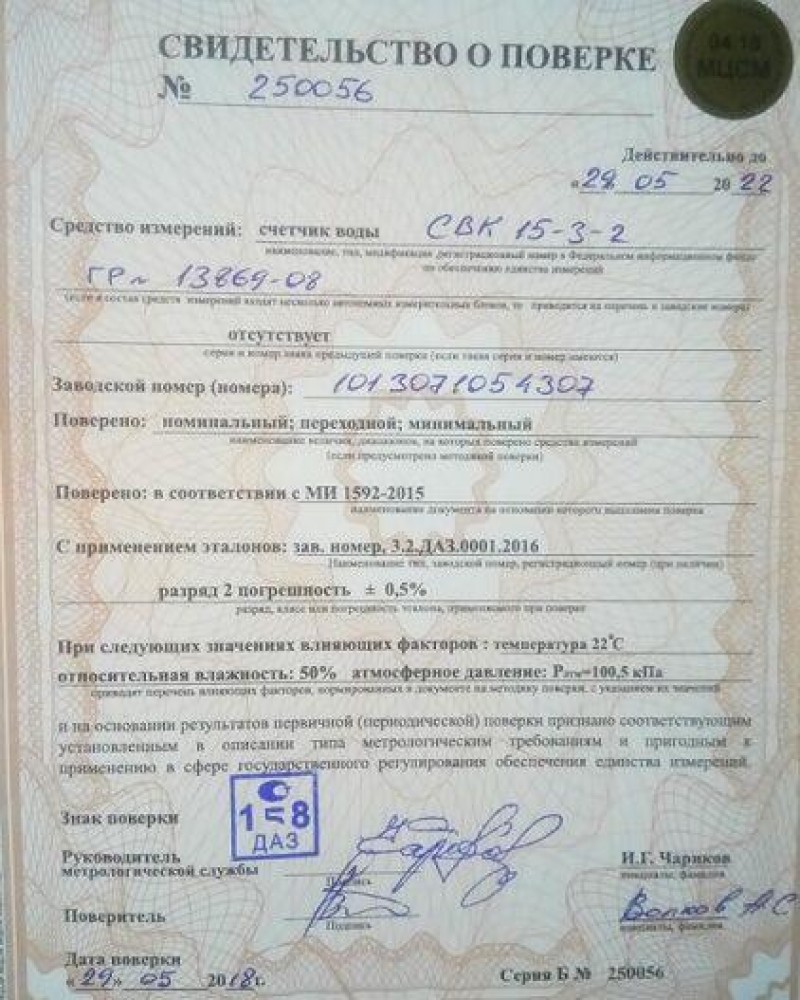 04.18
МЦСМ
СВИДЕТЕЛЬСТВО О ПОВЕРКЕ
№ 250056
Действительно до
«28 05 2022
Средство измерений: счетчик воды СВК 15-3-2
наименование, тип, модификация, регистрационный номер в Федеральном информационном фонде
по обеспечению единства измерений
ГР № 13869-08
(если в состав средств измерений входят несколько автономных измерительных блоков, то приводится их перечень и заводские номера)
отсутствует
серия и номер знака предыдущей поверки (если такие серия и номер имеются)
Заводской номер (номера): 1013071054307
Поверено: номинальный; переходной; минимальный
наименование величин, диапазонов, на которых поверено средство измерений
(если предусмотрено методикой поверки)
Поверено: в соответствии с МИ 1592-2015
наименование документа на основании которого выполнена поверка
С применением эталонов: зав. номер, 3.2.ДАЗ.0001.2016
Наименование тип, заводской номер, регистрационный номер (при наличии)
разряд 2 погрешность ± 0,5%
разряд, класс или погрешность эталона, применяемого при поверке
При следующих значениях влияющих факторов : температура 22°С
относительная влажность: 50% атмосферное давление: Ратм=100,5 кПа
приводят перечень влияющих факторов, нормированных в документе на методику поверки, с указанием их значений
и на основании результатов первичной (периодической) поверки признано соответствующим
установленным в описании типа метрологическим требованиям и пригодным к
применению в сфере государственного регулирования обеспечения единства измерений.
Знак поверки
1 8
ДАЗ
Руководитель
метрологической службы
Подпись
И.Г. Чариков
инициалы, фамилия
Поверитель
Подпись
Волков А С
инициалы, фамилия
Дата поверки
«29» 05 2018г.
Серия Б № 250056